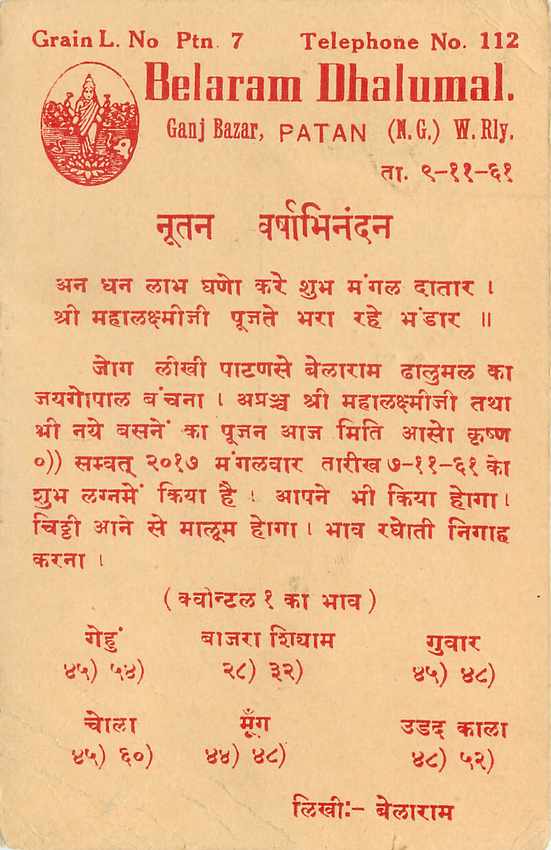 Grain L. No Ptn. 7 Telephone No. 112
Belaram Dhalumal.
Ganj Bazar, PATAN (N.G.) W. Rly.
ता. ९-११-६१
नूतन वर्षाभिनंदन
अन धन लाभ घणो करे शुभ मंगल दातार ।
श्री महालक्ष्मीजी पूजते भरा रहे भंडार ॥
जोग लीखी पाटणसे बेलाराम ढालुमल का
जयगोपाल बंचना । अप्रञ्च श्री महालक्ष्मीजी तथा
श्री नये बसनें का पूजन आज मिति आसो कृष्ण
०)) सम्वत् २०१७ मंगलवार तारीख ७-११-६१ को
शुभ लग्नमें किया है । आपने भी किया होगा ।
चिट्टी आने से मालूम होगा । भाव रघोती निगाह
करना ।
(क्वोन्टल १ का भाव)
गेहुं बाजरा शियाम गुवार
४५) ५४) २८) ३२) ४५) ४८)
चोला मूँग उडद काला
४५) ६०) ४४) ४८) ४८) ५२)
लिखी:- बेलाराम